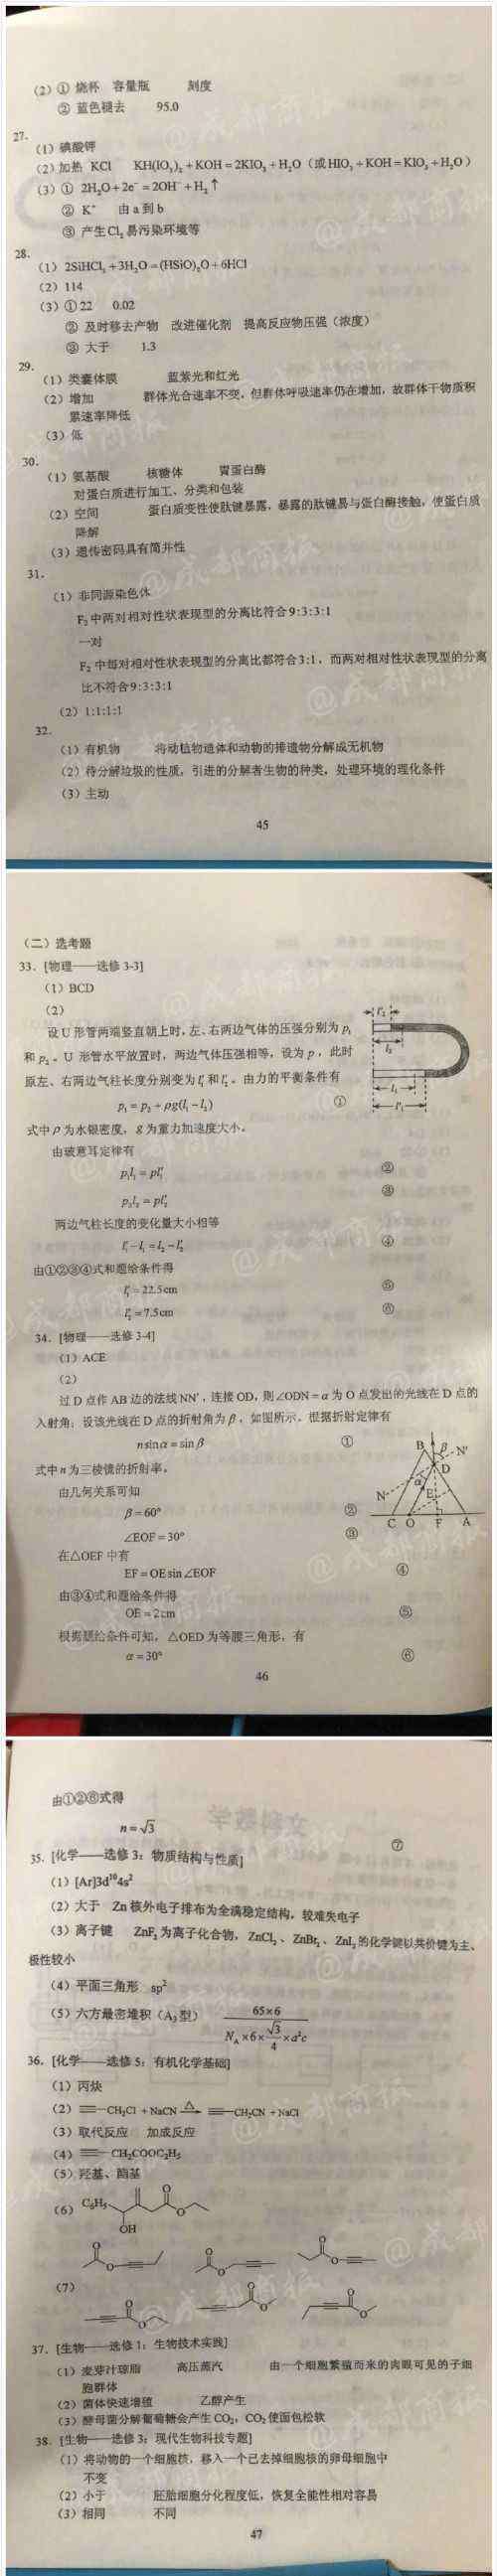 (2) ① 烧杯 容量瓶 刻度
② 蓝色褪去 95.0
27.
(1) 碘酸钾
(2) 加热 KCl KH(IO₃)₂+KOH=2KIO₃+H₂O(或HIO₃+KOH=KIO₃+H₂O)
(3) ① 2H₂O+2e⁻=2OH⁻+H₂↑
② K⁺ 由a到b
③ 产生Cl₂易污染环境等
28.
(1) 2SiHCl₃+3H₂O=(HSiO)₂O+6HCl
(2) 114
(3) ①22 0.02
② 及时移去产物 改进催化剂 提高反应物压强(浓度)
③ 大于 1.3
29.
(1) 类囊体膜 蓝紫光和红光
(2) 增加 群体光合速率不变,但群体呼吸速率仍在增加,故群体干物质积
累速率降低
(3) 低
30.
(1) 氨基酸 核糖体 胃蛋白酶
对蛋白质进行加工、分类和包装
(2) 空间 蛋白质变性使肽键暴露,暴露的肽键易与蛋白酶接触,使蛋白质
降解
(3) 遗传密码具有简并性
31.
(1) 非同源染色体
F₂中两对相对性状表现型的分离比符合9:3:3:1
一对
F₂中每对相对性状表现型的分离比都符合3:1,而两对相对性状表现型的分离
比不符合9:3:3:1
(2) 1:1:1:1
32.
(1) 有机物 将动植物遗体和动物的排遗物分解成无机物
(2) 待分解垃圾的性质,引进的分解者生物的种类,处理环境的理化条件
(3) 主动
45
(二) 选考题
33. [物理——选修3-3]
(1) BCD
(2)
设U形管两端竖直朝上时,左、右两边气体的压强分别为p₁
和p₂。U形管水平放置时,两边气体压强相等,设为p,此时
原左、右两边气柱长度分别变为l₁′和l₂′。由力的平衡条件有
p₁=p₂+ρg(l₁-l₂) ①
式中ρ为水银密度,g为重力加速度大小。
由玻意耳定律有
p₁l₁=pl₁′ ②
p₂l₂=pl₂′ ③
两边气柱长度的变化量大小相等
l₁′-l₁=l₂-l₂′ ④
由①②③④式和题给条件得
l₁′=22.5cm ⑤
l₂′=7.5cm ⑥
l₂′
l₂
l₁
l₁′
34. [物理——选修3-4]
(1) ACE
(2)
过D点作AB边的法线NN′,连接OD,则∠ODN=α为O点发出的光线在D点的
入射角;设该光线在D点的折射角为β,如图所示。根据折射定律有
n sinα=sinβ ①
式中n为三棱镜的折射率。
由几何关系可知
β=60° ②
∠EOF=30° ③
在△OEF中有
EF=OE sin∠EOF ④
由③④式和题给条件得
OE=2cm ⑤
根据题给条件可知,△OED为等腰三角形,有
α=30° ⑥
B β N′
D
α
N E
C O F A
46
由①②⑥式得
n=√3 ⑦
35. [化学——选修3:物质结构与性质]
(1) [Ar]3d¹⁰4s²
(2) 大于 Zn核外电子排布为全满稳定结构,较难失电子
(3) 离子键 ZnF₂为离子化合物,ZnCl₂、ZnBr₂、ZnI₂的化学键以共价键为主、
极性较小
(4) 平面三角形 sp²
(5) 六方最密堆积(A₃型) 65×6
N_A×6×√3/4×a²c
36. [化学——选修5:有机化学基础]
(1) 丙炔
(2) ≡—CH₂Cl+NaCN →△ ≡—CH₂CN+NaCl
(3) 取代反应 加成反应
(4) ≡—CH₂COOC₂H₅
(5) 羟基、酯基
(6) C₆H₅ O O
OH
(7)
37. [生物——选修1:生物技术实践]
(1) 麦芽汁琼脂 高压蒸汽 由一个细胞繁殖而来的肉眼可见的子细
胞群体
(2) 菌体快速增殖 乙醇产生
(3) 酵母菌分解葡萄糖会产生CO₂,CO₂使面包松软
38. [生物——选修3:现代生物科技专题]
(1) 将动物的一个细胞核,移入一个已去掉细胞核的卵母细胞中
不变
(2) 小于 胚胎细胞分化程度低,恢复全能性相对容易
(3) 相同 不同
47
@成都商报